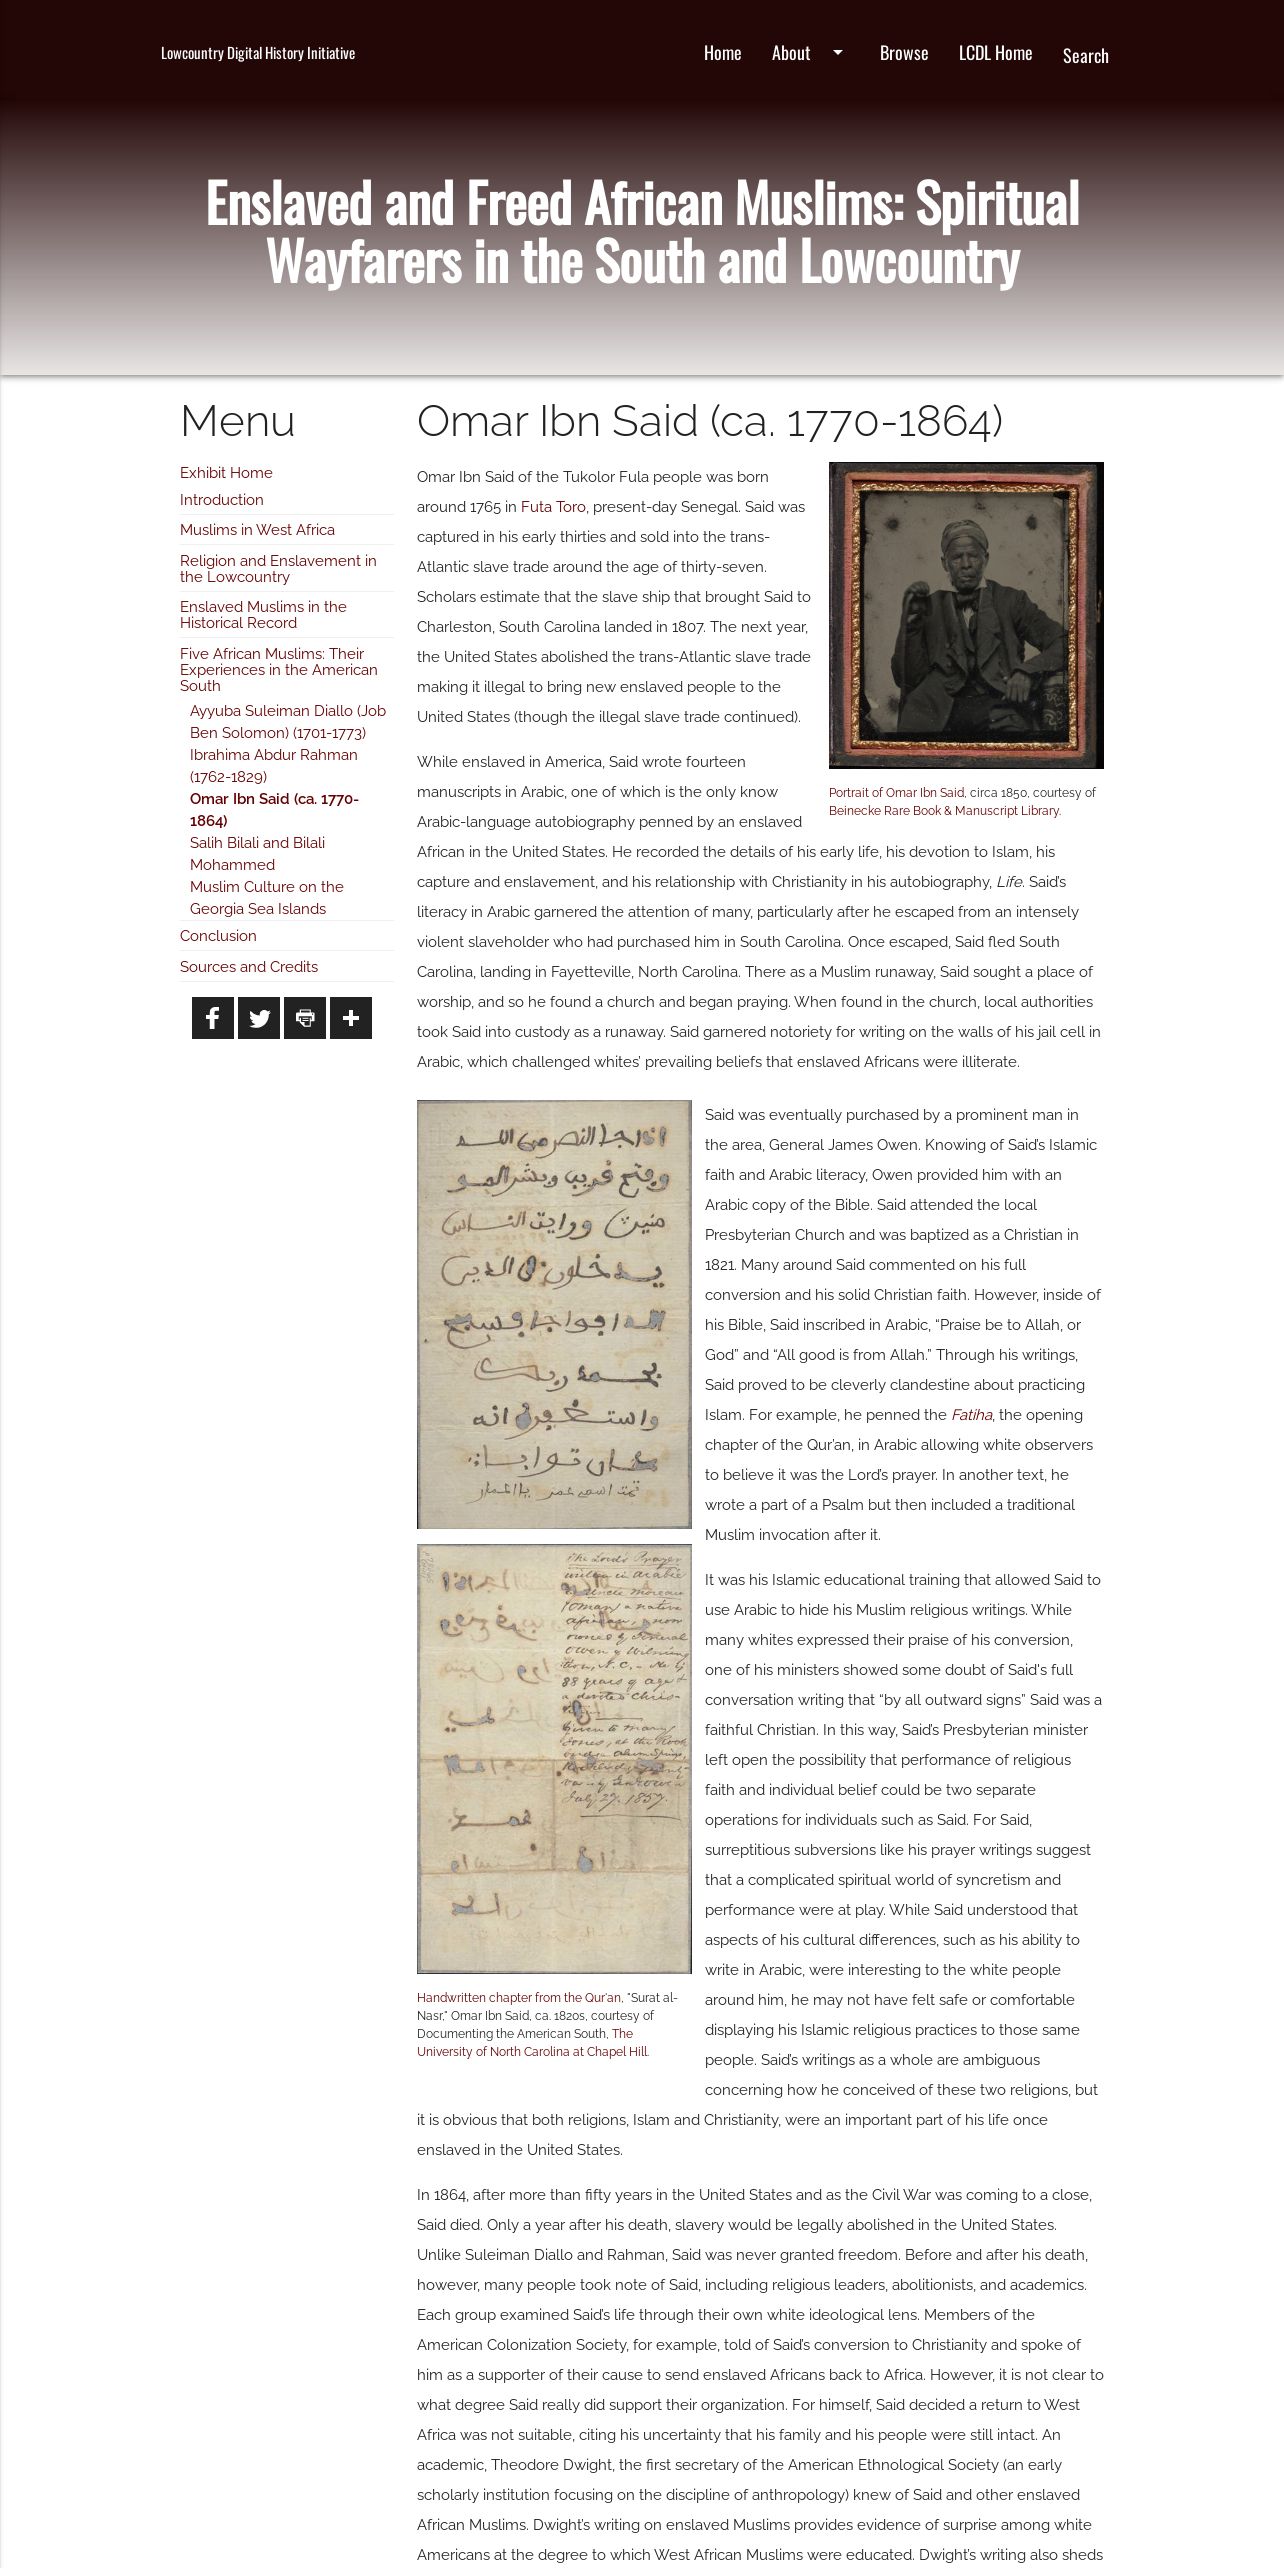 Lowcountry Digital History Initiative
Home
About
Browse
LCDL Home
Search
Enslaved and Freed African Muslims: Spiritual
Wayfarers in the South and Lowcountry
Menu
Exhibit Home
Introduction
Muslims in West Africa
Religion and Enslavement in
the Lowcountry
Enslaved Muslims in the
Historical Record
Five African Muslims: Their
Experiences in the American
South
Ayyuba Suleiman Diallo (Job
Ben Solomon) (1701-1773)
Ibrahima Abdur Rahman
(1762-1829)
Omar Ibn Said (ca. 1770-
1864)
Salih Bilali and Bilali
Mohammed
Muslim Culture on the
Georgia Sea Islands
Conclusion
Sources and Credits
Omar Ibn Said (ca. 1770-1864)
Omar Ibn Said of the Tukolor Fula people was born
around 1765 in Futa Toro, present-day Senegal. Said was
captured in his early thirties and sold into the trans-
Atlantic slave trade around the age of thirty-seven.
Scholars estimate that the slave ship that brought Said to
Charleston, South Carolina landed in 1807. The next year,
the United States abolished the trans-Atlantic slave trade
making it illegal to bring new enslaved people to the
United States (though the illegal slave trade continued).
Portrait of Omar Ibn Said, circa 1850, courtesy of
Beinecke Rare Book & Manuscript Library.
While enslaved in America, Said wrote fourteen
manuscripts in Arabic, one of which is the only know
Arabic-language autobiography penned by an enslaved
African in the United States. He recorded the details of his early life, his devotion to Islam, his
capture and enslavement, and his relationship with Christianity in his autobiography, Life. Said’s
literacy in Arabic garnered the attention of many, particularly after he escaped from an intensely
violent slaveholder who had purchased him in South Carolina. Once escaped, Said fled South
Carolina, landing in Fayetteville, North Carolina. There as a Muslim runaway, Said sought a place of
worship, and so he found a church and began praying. When found in the church, local authorities
took Said into custody as a runaway. Said garnered notoriety for writing on the walls of his jail cell in
Arabic, which challenged whites’ prevailing beliefs that enslaved Africans were illiterate.
اذا جا النصر من الله
وفتح قريب وبشر المو
منين ورايت الناس
يدخلون في الدين
الله افواجا فسبح
بحمد ربك
واستغفره انه
كان توابا
تمت اسمي عمر
The Lord's Prayer
written in Arabic
by Uncle Moreau
(Omar) a native
African, now
owned by General
Owen of Wilming
ton, N.C. He is
88 years of age &
a devoted Chris-
tian.
Given to Mary
Jones, at the Rock
bridge Alum Springs,
July 27. 1857.
Handwritten chapter from the Qur'an, "Surat al-
Nasr," Omar Ibn Said, ca. 1820s, courtesy of
Documenting the American South, The
University of North Carolina at Chapel Hill.
Said was eventually purchased by a prominent man in
the area, General James Owen. Knowing of Said’s Islamic
faith and Arabic literacy, Owen provided him with an
Arabic copy of the Bible. Said attended the local
Presbyterian Church and was baptized as a Christian in
1821. Many around Said commented on his full
conversion and his solid Christian faith. However, inside of
his Bible, Said inscribed in Arabic, “Praise be to Allah, or
God” and “All good is from Allah.” Through his writings,
Said proved to be cleverly clandestine about practicing
Islam. For example, he penned the Fatiha, the opening
chapter of the Qur’an, in Arabic allowing white observers
to believe it was the Lord’s prayer. In another text, he
wrote a part of a Psalm but then included a traditional
Muslim invocation after it.
It was his Islamic educational training that allowed Said to
use Arabic to hide his Muslim religious writings. While
many whites expressed their praise of his conversion,
one of his ministers showed some doubt of Said's full
conversation writing that “by all outward signs” Said was a
faithful Christian. In this way, Said’s Presbyterian minister
left open the possibility that performance of religious
faith and individual belief could be two separate
operations for individuals such as Said. For Said,
surreptitious subversions like his prayer writings suggest
that a complicated spiritual world of syncretism and
performance were at play. While Said understood that
aspects of his cultural differences, such as his ability to
write in Arabic, were interesting to the white people
around him, he may not have felt safe or comfortable
displaying his Islamic religious practices to those same
people. Said’s writings as a whole are ambiguous
concerning how he conceived of these two religions, but
it is obvious that both religions, Islam and Christianity, were an important part of his life once
enslaved in the United States.
In 1864, after more than fifty years in the United States and as the Civil War was coming to a close,
Said died. Only a year after his death, slavery would be legally abolished in the United States.
Unlike Suleiman Diallo and Rahman, Said was never granted freedom. Before and after his death,
however, many people took note of Said, including religious leaders, abolitionists, and academics.
Each group examined Said’s life through their own white ideological lens. Members of the
American Colonization Society, for example, told of Said’s conversion to Christianity and spoke of
him as a supporter of their cause to send enslaved Africans back to Africa. However, it is not clear to
what degree Said really did support their organization. For himself, Said decided a return to West
Africa was not suitable, citing his uncertainty that his family and his people were still intact. An
academic, Theodore Dwight, the first secretary of the American Ethnological Society (an early
scholarly institution focusing on the discipline of anthropology) knew of Said and other enslaved
African Muslims. Dwight’s writing on enslaved Muslims provides evidence of surprise among white
Americans at the degree to which West African Muslims were educated. Dwight’s writing also sheds